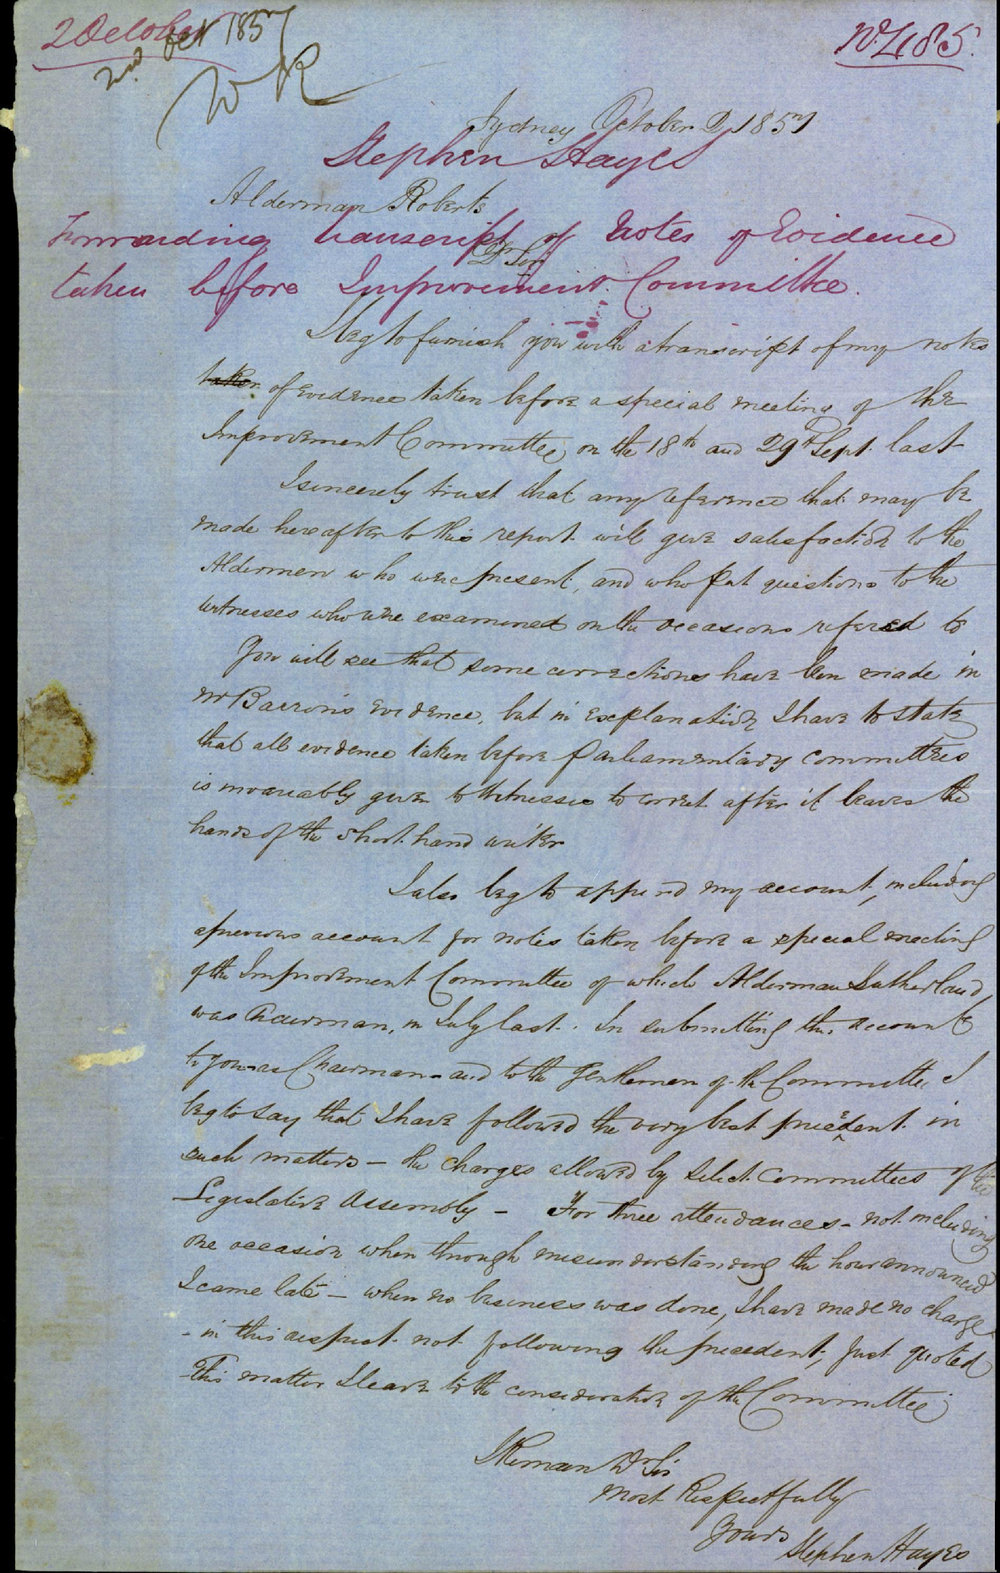 2 October
No. 485.
2nd Oct 1857
W R
Sydney October 2 1857
Stephen Hayes
Alderman Roberts
Forwarding transcript of Notes of Evidence
Dr Sir
taken before Improvement Committee.
I beg to furnish you with a transcript of my notes
taken of Evidence taken before a special meeting of the
Improvement Committee on the 18th and 29th Sept. last
I sincerely trust that any reference that may be
made hereafter to this report will give satisfaction to the
Aldermen who were present, and who put questions to the
witnesses who were examined on the occasions refered to
You will see that some corrections have been made in
Mr Barron's Evidence, but in explanation I have to state
that all evidence taken before Parliamentary committees
is invareably given to witnesses to corret after it leaves the
hands of the short hand writer
I also beg to append my account, including
a previous account for notes taken before a special meeting
of the Improvement Committee of which Alderman Sutherland,
was Chairman, in July last. In submitting this account
to you as Chairman - and to the Gentlemen of the Committee I
beg to say that I have followed the very best precedent in
such matters - the charges allowed by Select Committees of the
Legislative Assembly - For three attendances - not including
one occasion when through misunderstanding the hour announced
I came late - when no business was done, I have made no charge
- in this respect not following the precedent, just quoted
This matter I leave to the consideration of the Committee
I Remain Dr Sir
Most Respectfully
Yours
Stephen Hayes